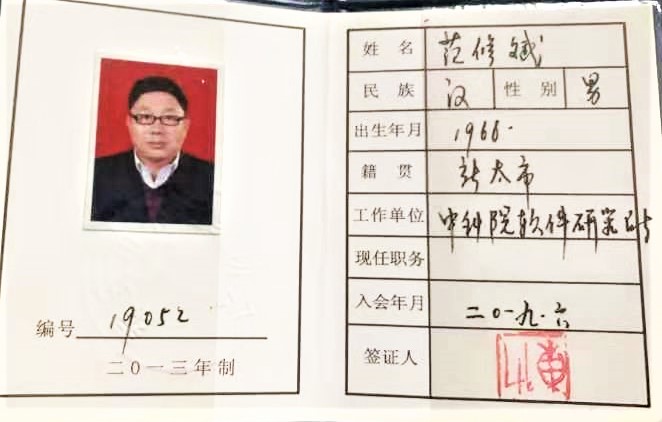 编号 19052
二〇一三年制
姓名 范修斌
民族 汉 性别 男
出生年月 1966.
籍贯 新太市
工作单位 中科院软件研究所
现任职务
入会年月 二〇一九.六
签证人